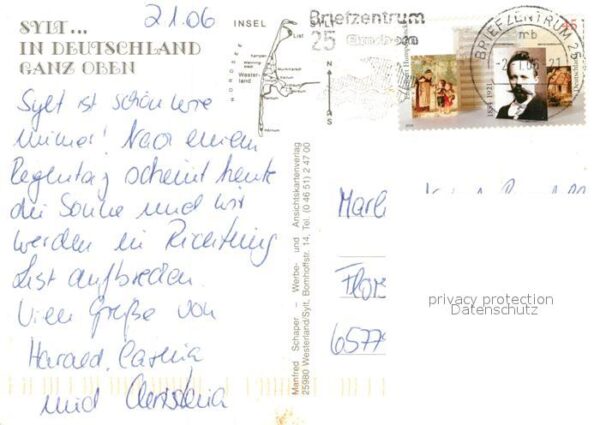 2.1.06
SYLT...
IN DEUTSCHLAND
GANZ OBEN
Sylt ist schön wie
immer! Nach einem
Regentag scheint heute
die Sonne und wir
werden in Richtung
List aufbrechen.
Viele Grüße von
Harald, Carina
und Christina
INSEL SYLT
NORDSEE
List
Kampen
Westerland
N
S
Manfred Schaper – Werbe- und Ansichtskartenverlag
25980 Westerland/Sylt, Bomhoffstr. 14, Tel. (0 46 51) 2 47 00
Briefzentrum
25
BRIEFZENTRUM 25
mb
-2.1.06-21
55
1834-1921
Marl
Flor
6577
privacy protection
Datenschutz